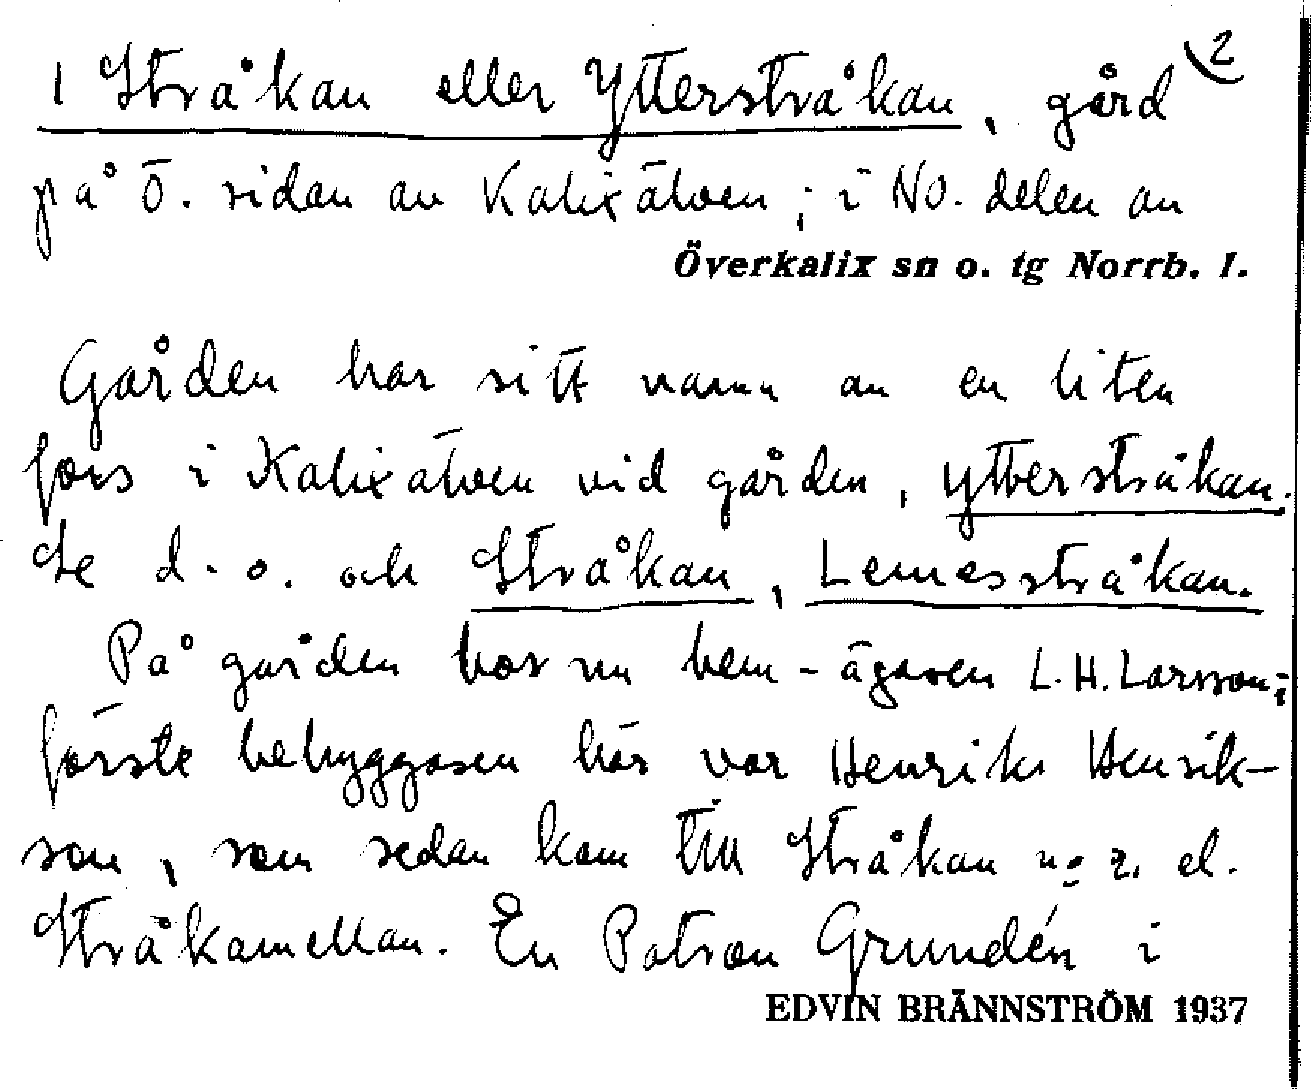 2
1 Stråkan eller Ytterstråkan, gård
på ö. sidan av Kalixälven; i NO. delen av
Överkalix sn o. tg Norrb. I.
Gården har sitt namn av en liten
fors i Kalixälven vid gården, Ytterstråkan.
Se d. o. och Stråkan, Lemesstråkan.
På gården bor nu hem-ägaren L. H. Larsson;
förste bebyggaren här var Henrik Henrik-
son, som sedan kom till Stråkan no 2. el.
Stråkamellan. En Patron Grundén i
EDVIN BRÄNNSTRÖM 1937